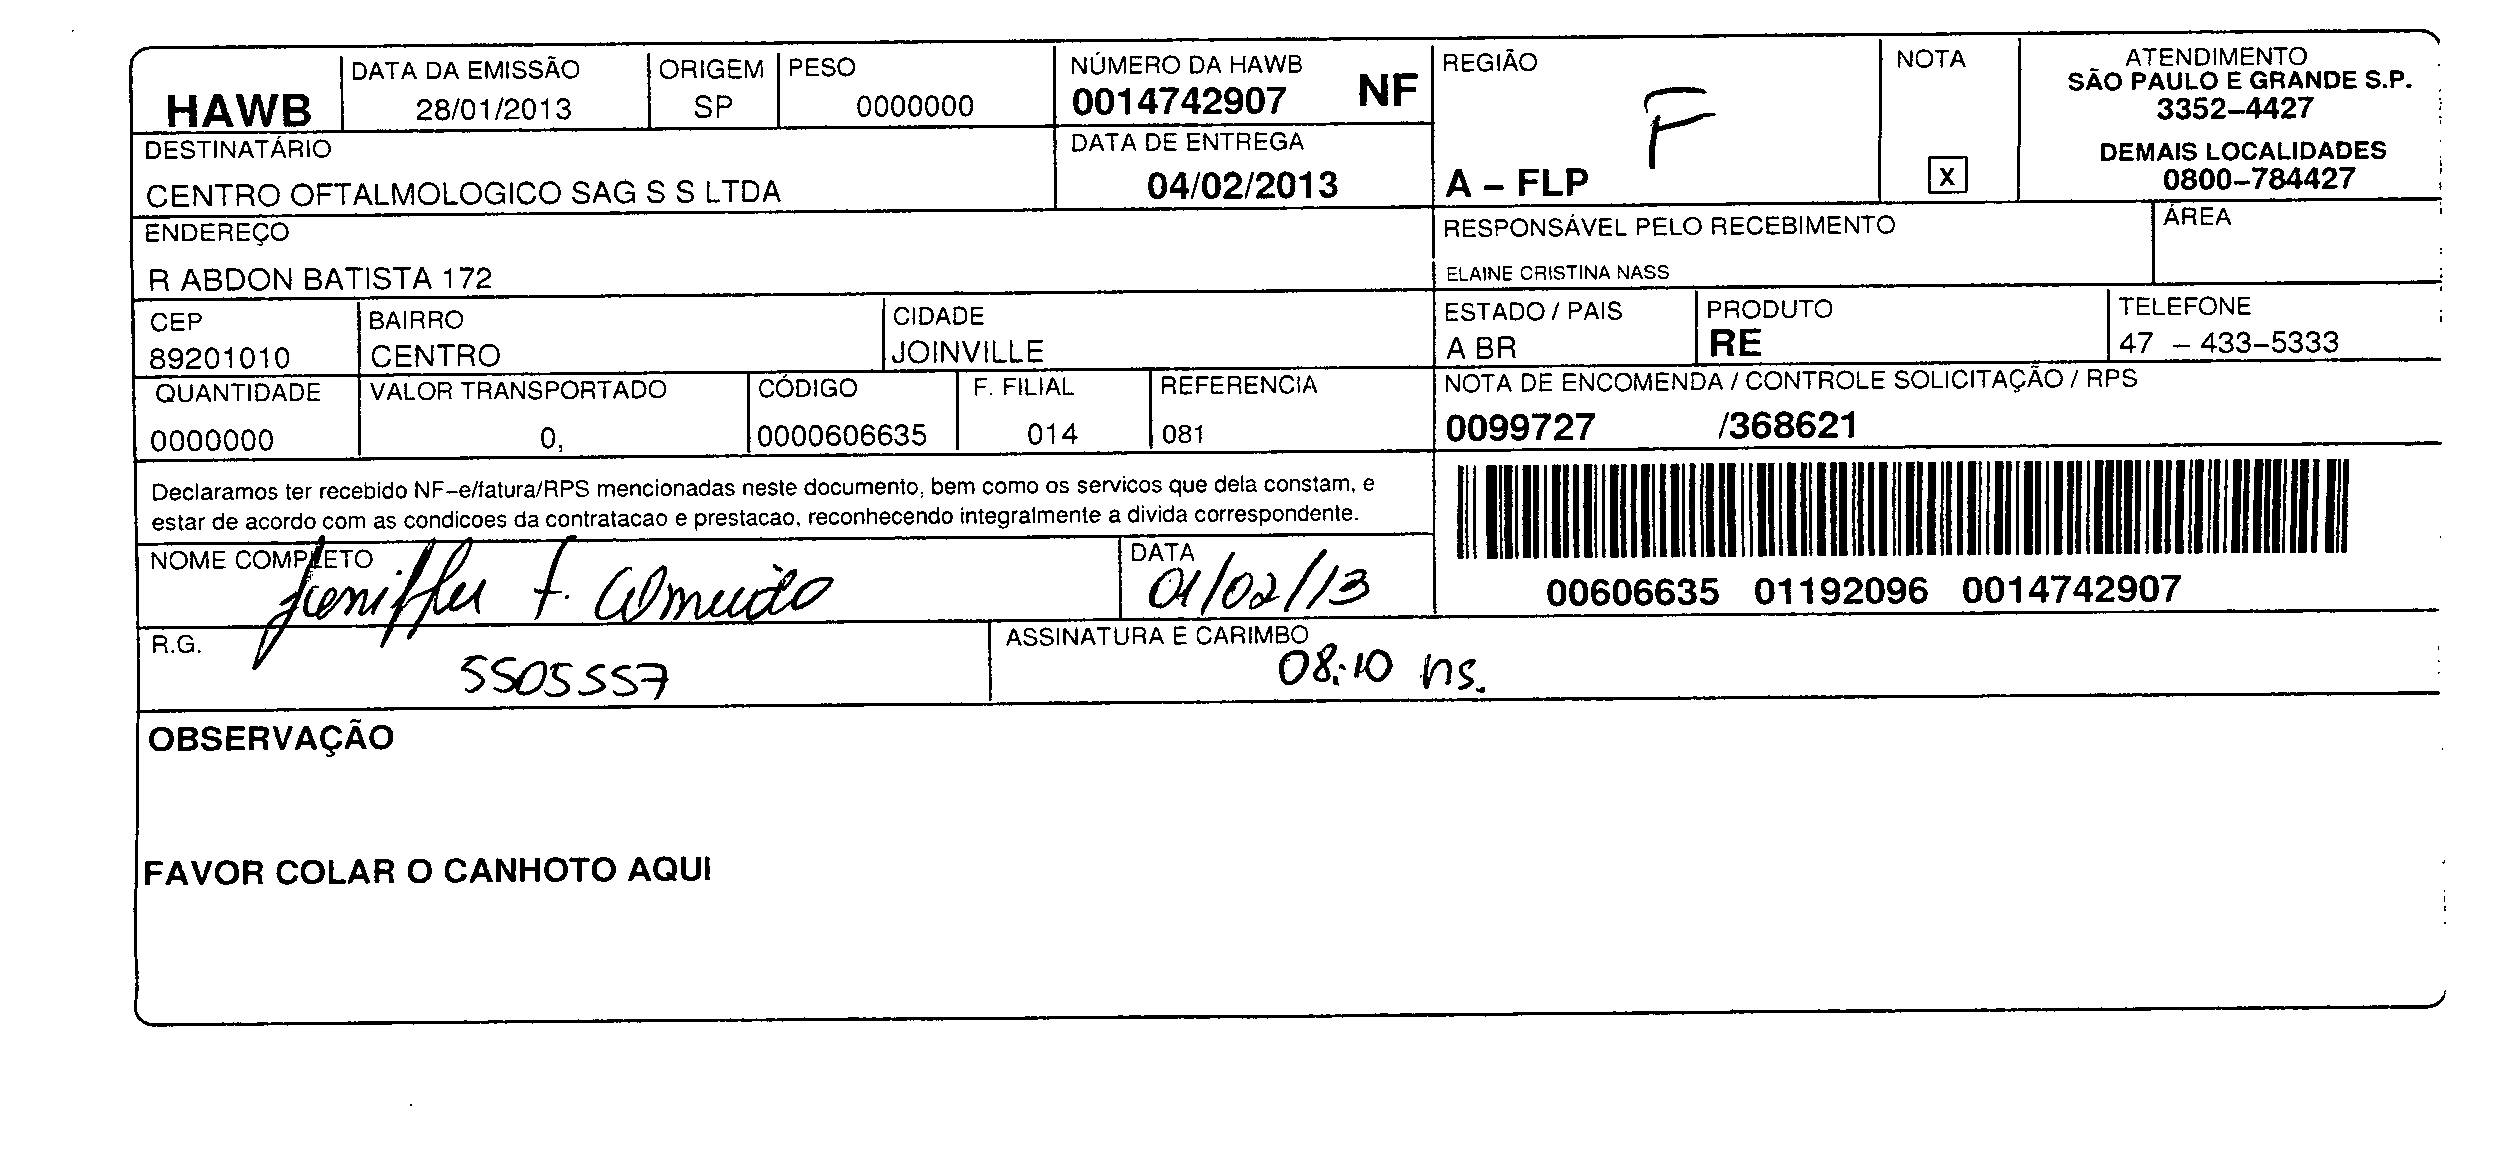 HAWB
DATA DA EMISSÃO
28/01/2013
ORIGEM
SP
PESO
0000000
NÚMERO DA HAWB
0014742907 NF
REGIÃO
F
A – FLP
NOTA
X
ATENDIMENTO
SÃO PAULO E GRANDE S.P.
3352–4427
DEMAIS LOCALIDADES
0800–784427
DESTINATÁRIO
CENTRO OFTALMOLOGICO SAG S S LTDA
DATA DE ENTREGA
04/02/2013
ENDEREÇO
R ABDON BATISTA 172
RESPONSÁVEL PELO RECEBIMENTO
ELAINE CRISTINA NASS
ÁREA
CEP
89201010
BAIRRO
CENTRO
CIDADE
JOINVILLE
ESTADO / PAIS
A BR
PRODUTO
RE
TELEFONE
47 – 433–5333
QUANTIDADE
0000000
VALOR TRANSPORTADO
0,
CÓDIGO
0000606635
F. FILIAL
014
REFERENCIA
081
NOTA DE ENCOMENDA / CONTROLE SOLICITAÇÃO / RPS
0099727 /368621
Declaramos ter recebido NF–e/fatura/RPS mencionadas neste documento, bem como os servicos que dela constam, e
estar de acordo com as condicoes da contratacao e prestacao, reconhecendo integralmente a divida correspondente.
00606635 01192096 0014742907
NOME COMPLETO
Jeniffer F. Almeida
DATA
01/02/13
R.G.
5505557
ASSINATURA E CARIMBO
08:10 hs.
OBSERVAÇÃO
FAVOR COLAR O CANHOTO AQUI